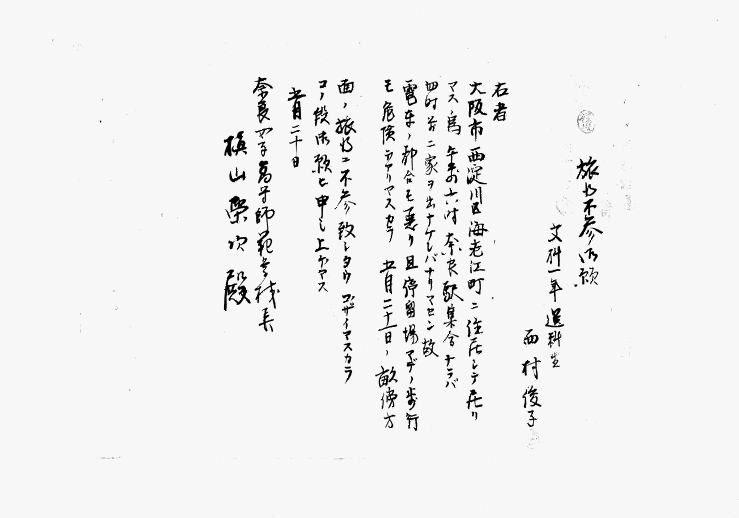 旅行不参御願
文科一年選科生
西村俊子
右者
大阪市西淀川区海老江町ニ住居シテ居リ
マス為午前六時奈良駅集合ナラバ
四時前ニ家ヲ出ナケレバナリマセン故
電車ノ都合モ悪ク且停留場マデノ歩行
モ危険デアリマスカラ五月二十一日ノ畝傍方
面ノ旅行ニ不参致シタウゴザイマスカラ
コノ段御願ヒ申シ上ゲマス
五月二十日
奈良女子高等師範学校長
槇山栄次殿